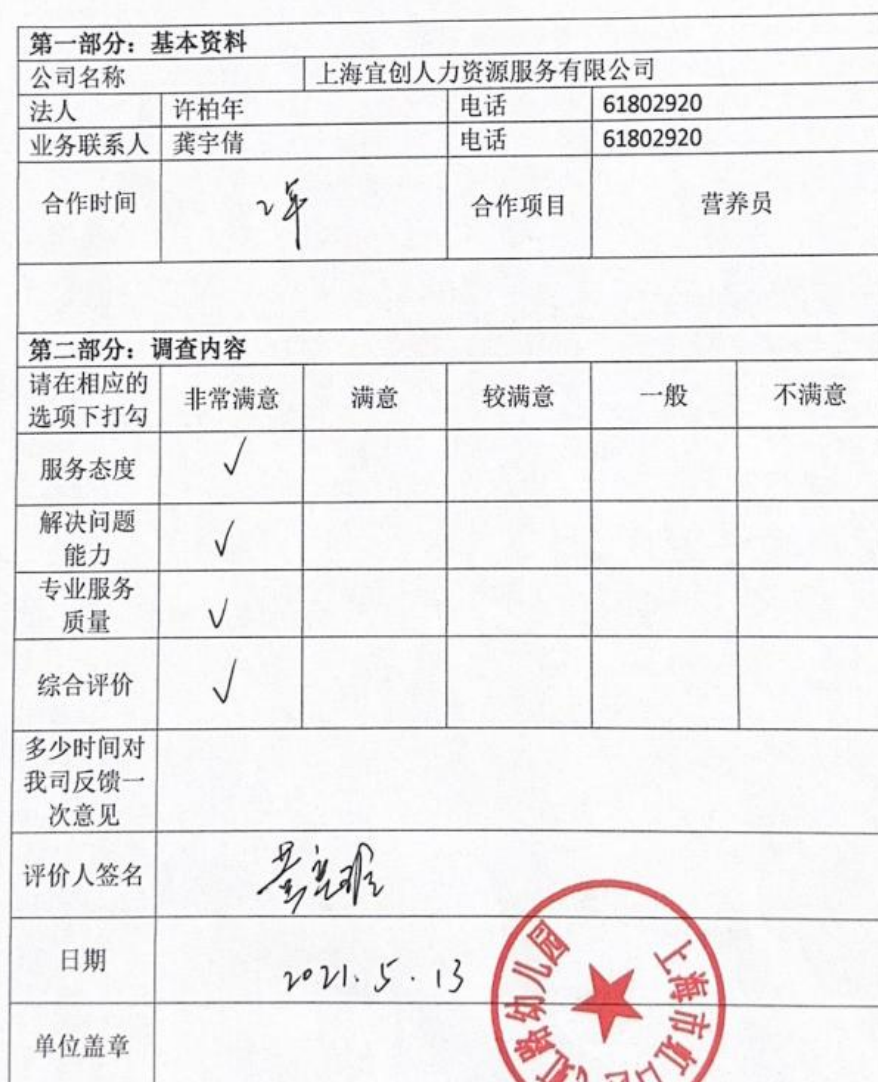 第一部分：基本资料
公司名称 上海宜创人力资源服务有限公司
法人 许柏年 电话 61802920
业务联系人 龚宇倩 电话 61802920
合作时间 2年 合作项目 营养员
第二部分：调查内容
请在相应的
选项下打勾
非常满意 满意 较满意 一般 不满意
服务态度 ✓
解决问题
能力
✓
专业服务
质量
✓
综合评价 ✓
多少时间对
我司反馈一
次意见
评价人签名
日期 2021.5.13
单位盖章
上海市虹口
路幼儿园